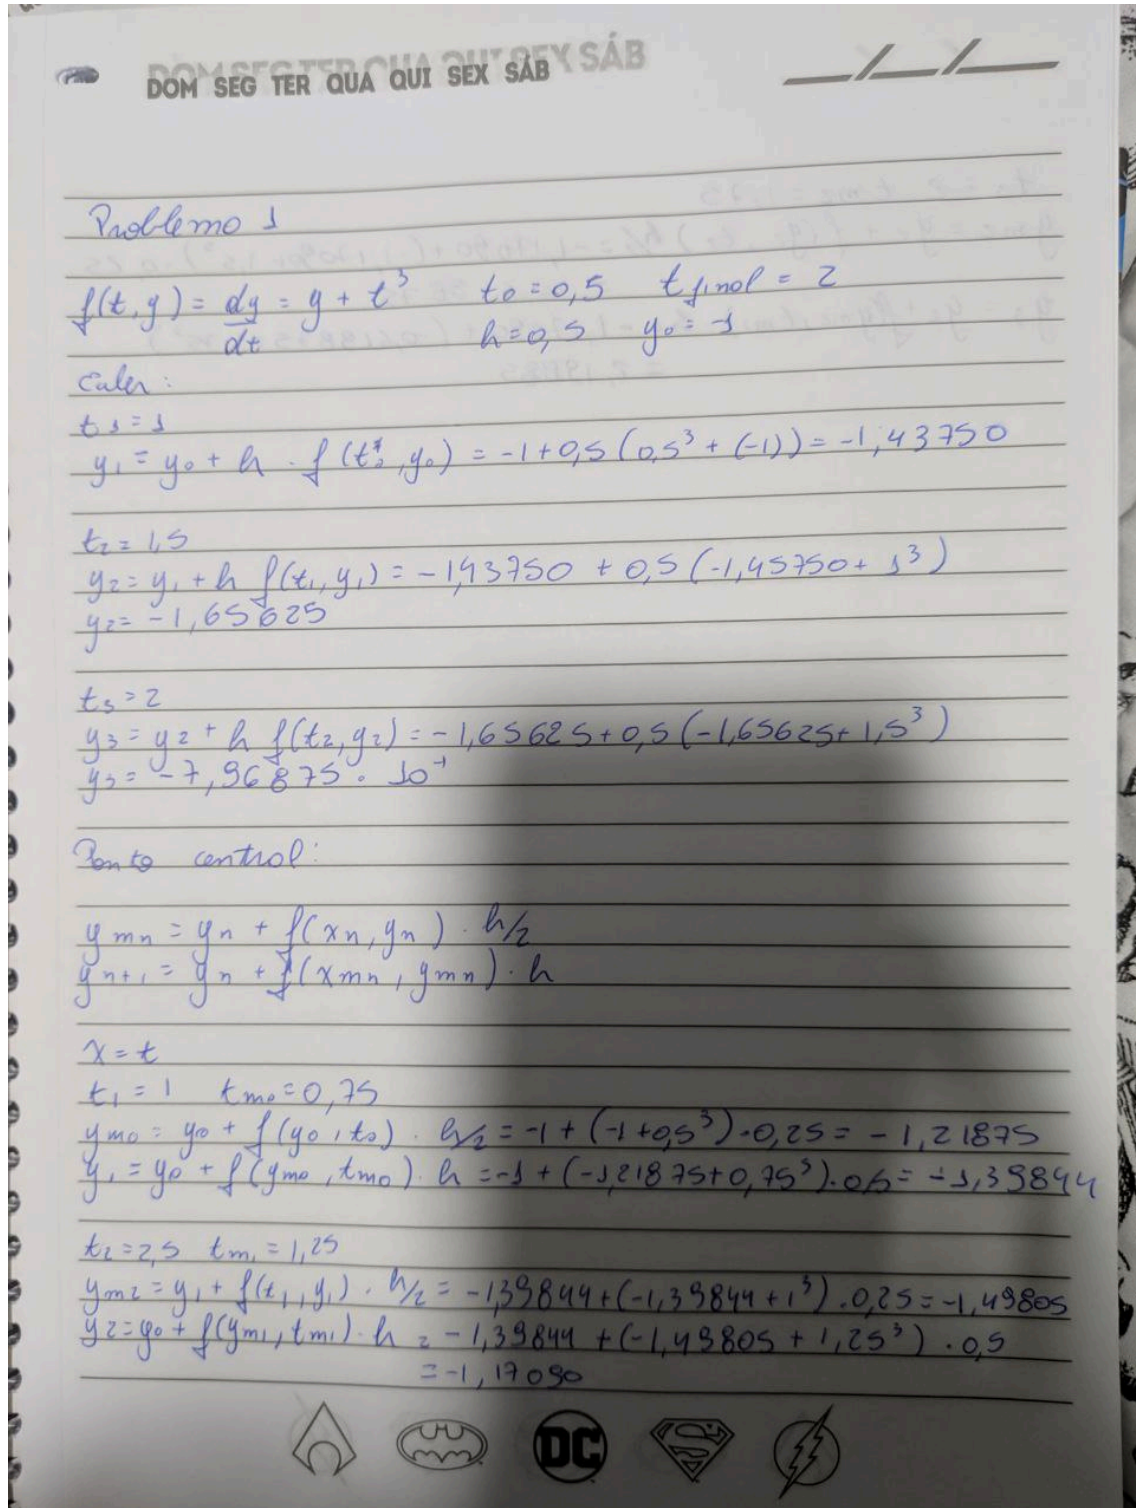 DOM SEG TER QUA QUI SEX SÁB
Problema 1
f(t,y) = dy/dt = y + t³ t0 = 0,5 t final = 2
h=0,5 y0 = -1
Euler:
t1 = 1
y1 = y0 + h . f(t0, y0) = -1+0,5(0,5³ + (-1)) = -1,43750
t2 = 1,5
y2 = y1 + h f(t1, y1) = -1,43750 + 0,5(-1,45750 + 1³)
y2 = -1,65625
t3 = 2
y3 = y2 + h f(t2, y2) = -1,65625 + 0,5(-1,65625 + 1,5³)
y3 = -7,96875 . 10⁻¹
Ponto central:
ymn = yn + f(xn, yn) . h/2
yn+1 = yn + f(xmn, ymn) . h
x = t
t1 = 1 tm0 = 0,75
ym0 = y0 + f(y0, t0) . h/2 = -1 + (-1+0,5³) . 0,25 = -1,21875
y1 = y0 + f(ym0, tm0) . h = -1 + (-1,21875+0,75³) . 0,5 = -1,39844
t2 = 2,5 tm1 = 1,25
ym2 = y1 + f(t1, y1) . h/2 = -1,39844 + (-1,39844 + 1³) . 0,25 = -1,49805
y2 = y0 + f(ym1, tm1) . h = -1,39844 + (-1,49805 + 1,25³) . 0,5
= -1,17090
DC